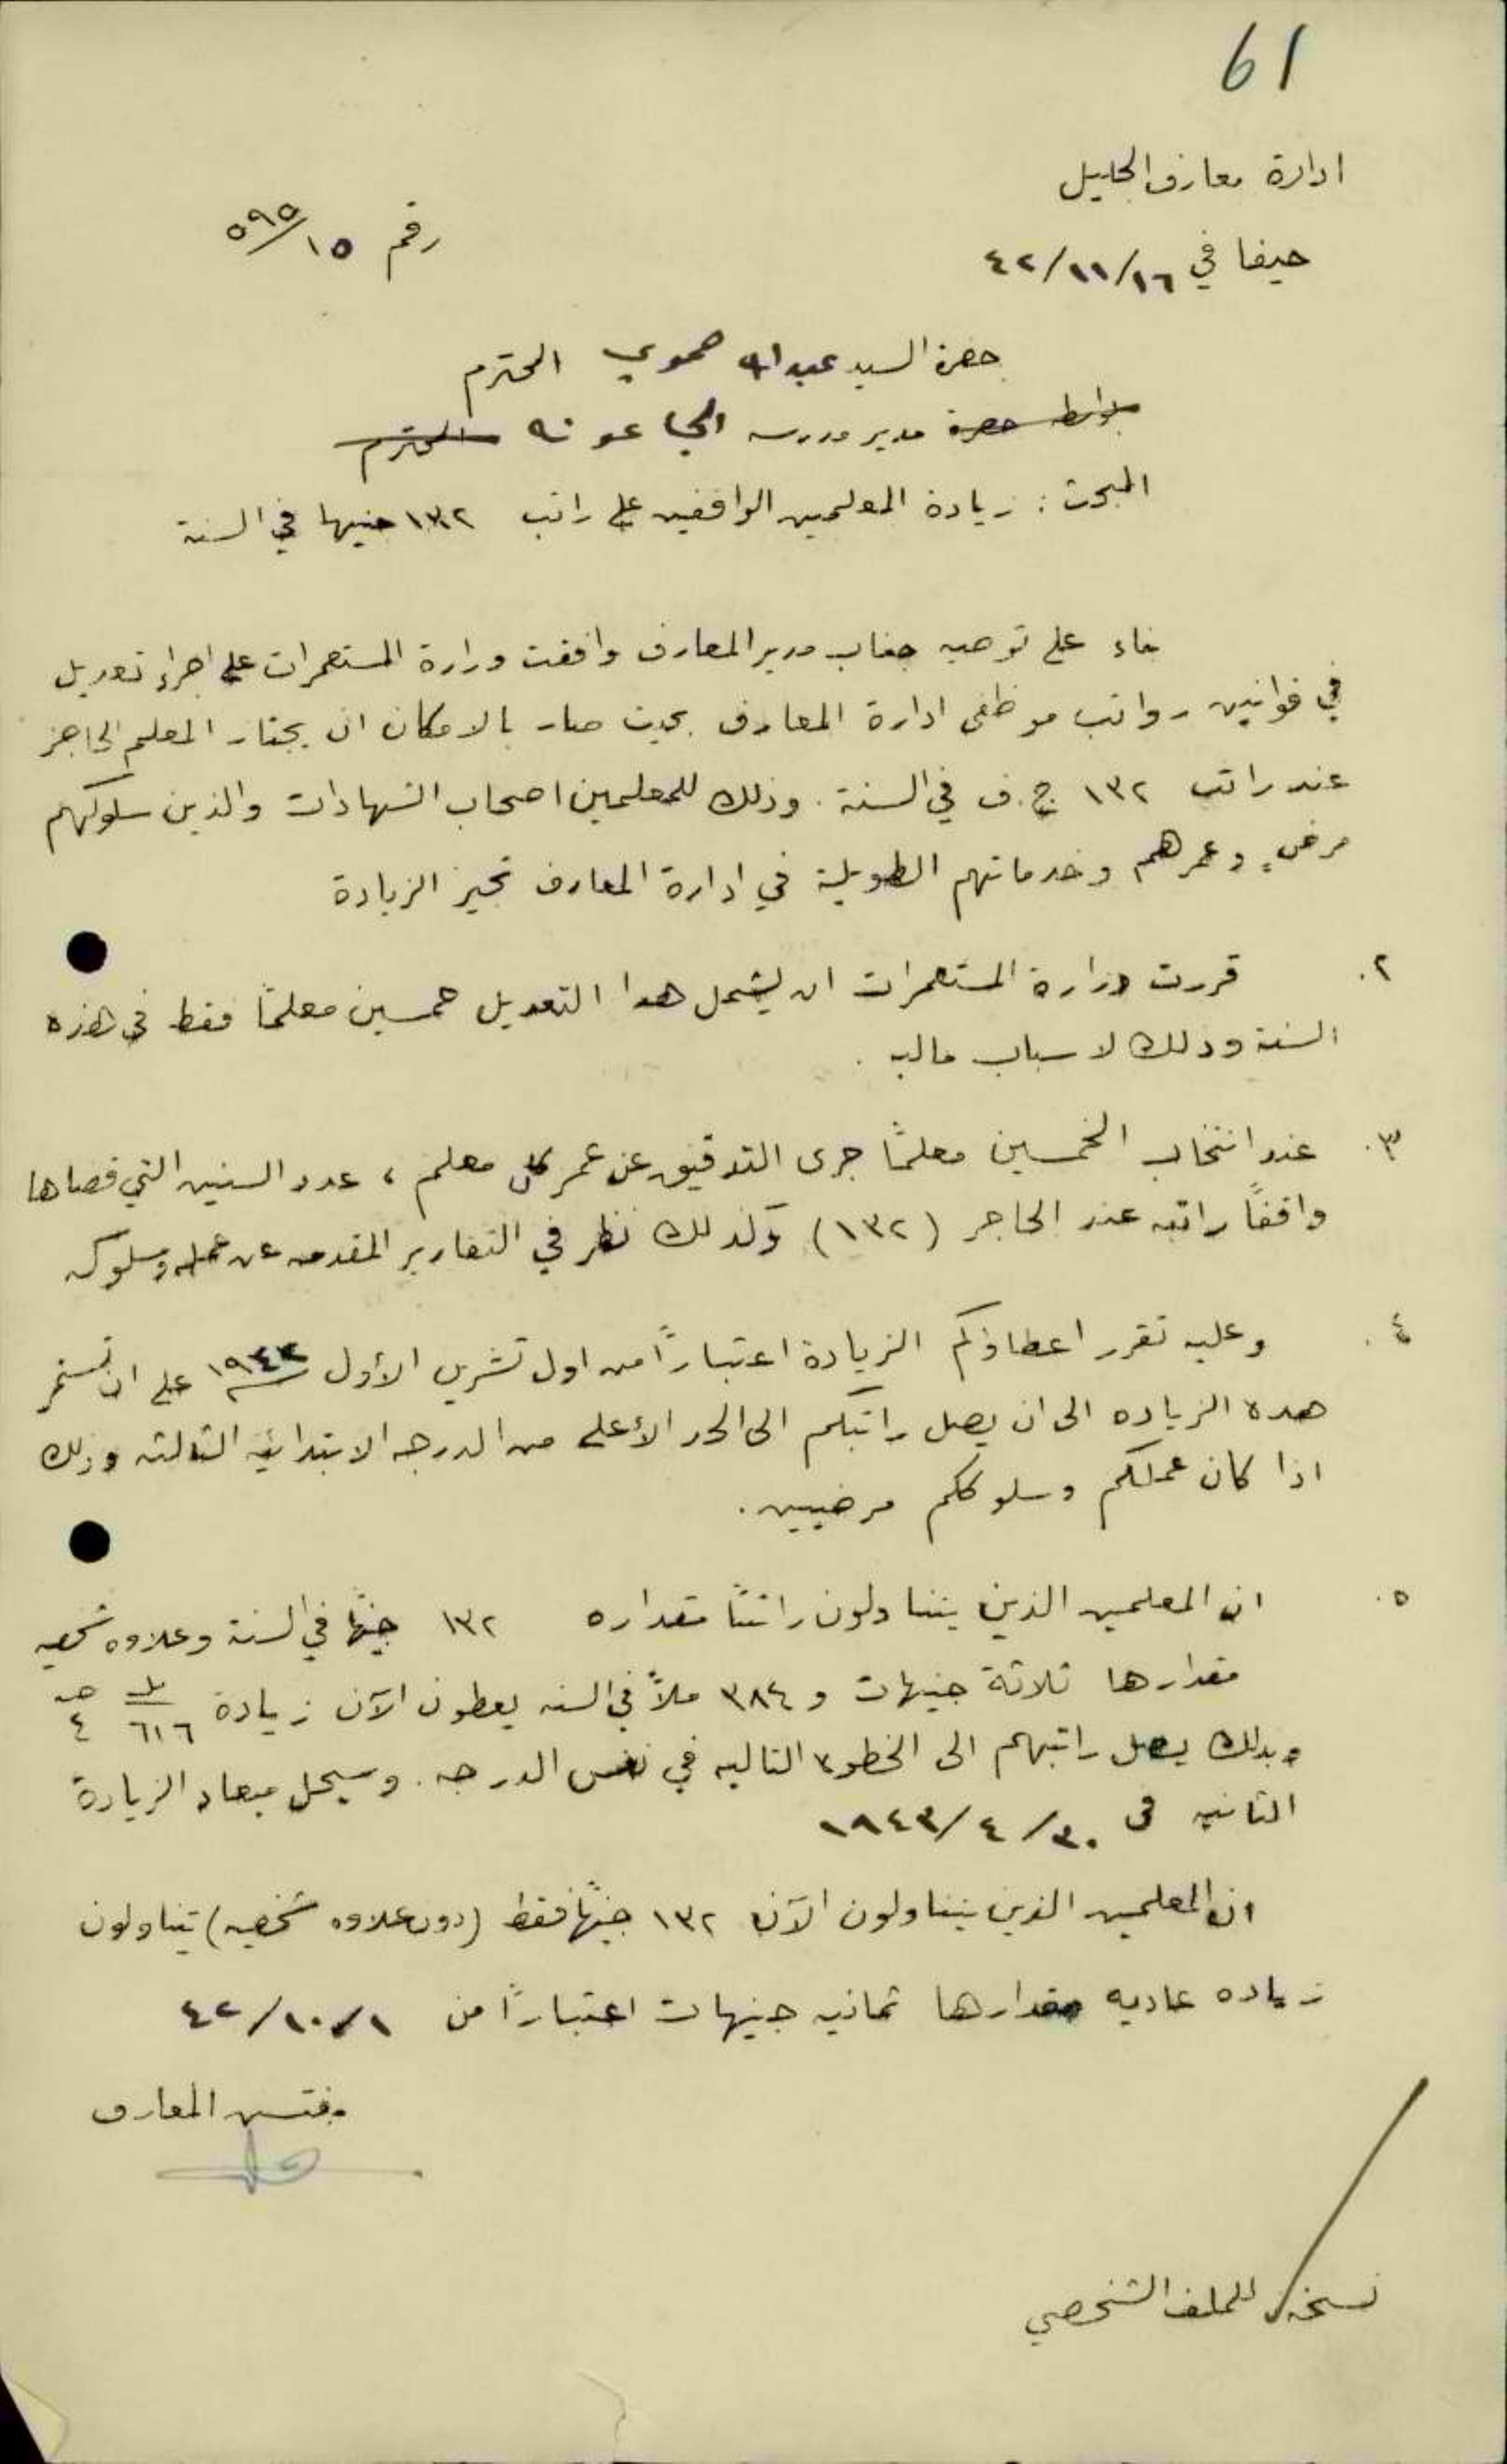 61
ادارة معارف الجليل
حيفا في ٤٢/١١/١٦
رقم ٥٩٥/١٥
حضرة السيد عبد الله حموي المحترم
بواسطة حضرة مدير مدرسه الجاعونه المحترم
المبحث : زيادة المعلمين الواقفين على راتب ١٣٢ جنيها في السنة
بناء على توصيه جناب مدير المعارف وافقت وزارة المستعمرات على اجراء تعديل
في قوانين رواتب موظفي ادارة المعارف بحيث صار بالامكان ان يجتاز المعلم الحاجز
عند راتب ١٣٢ ج.ف في السنة . وذلك للمعلمين اصحاب الشهادات والذين سلوكهم
مرضٍ وعمرهم وخدماتهم الطويلة في ادارة المعارف تجيز الزيادة
٢. قررت وزارة المستعمرات ان يشمل هذا التعديل خمسين معلمًا فقط في هذه
السنة وذلك لاسباب ماليه .
٣. عند انتخاب الخمسين معلمًا جرى التدقيق عن عمر كل معلم ، عدد السنين التي قضاها
واقفًا راتبه عند الحاجز (١٣٢) وكذلك نظر في التقارير المقدمه عن عمله وسلوكه
٤. وعليه تقرر اعطاؤكم الزيادة اعتبارًا من اول تشرين الأول ١٩٤٢ على ان تستمر
هذه الزياده الى ان يصل راتبكم الى الحد الأعلى من الدرجه الابتدائيه الثالثه وذلك
اذا كان عملكم وسلوككم مرضيين .
٥. ان المعلمين الذين يتناولون راتبًا مقداره ١٣٢ جنيهًا في السنة وعلاوه شخصيه
مقدارها ثلاثة جنيهات و ٣٨٤ ملاً في السنه يعطون الآن زيادة ٦١٦ مل ٤ جـ
وبذلك يصل راتبهم الى الخطوه التاليه في نفس الدرجه . وسيحل ميعاد الزيادة
الثانيه في ١٩٤٣/٤/٣٠
ان المعلمين الذين يتناولون الآن ١٣٢ جنيهًا فقط (دون علاوه شخصيه) يتناولون
زياده عاديه مقدارها ثمانيه جنيهات اعتبارًا من ٤٢/١٠/١
مفتش المعارف
نسخة للملف الشخصي